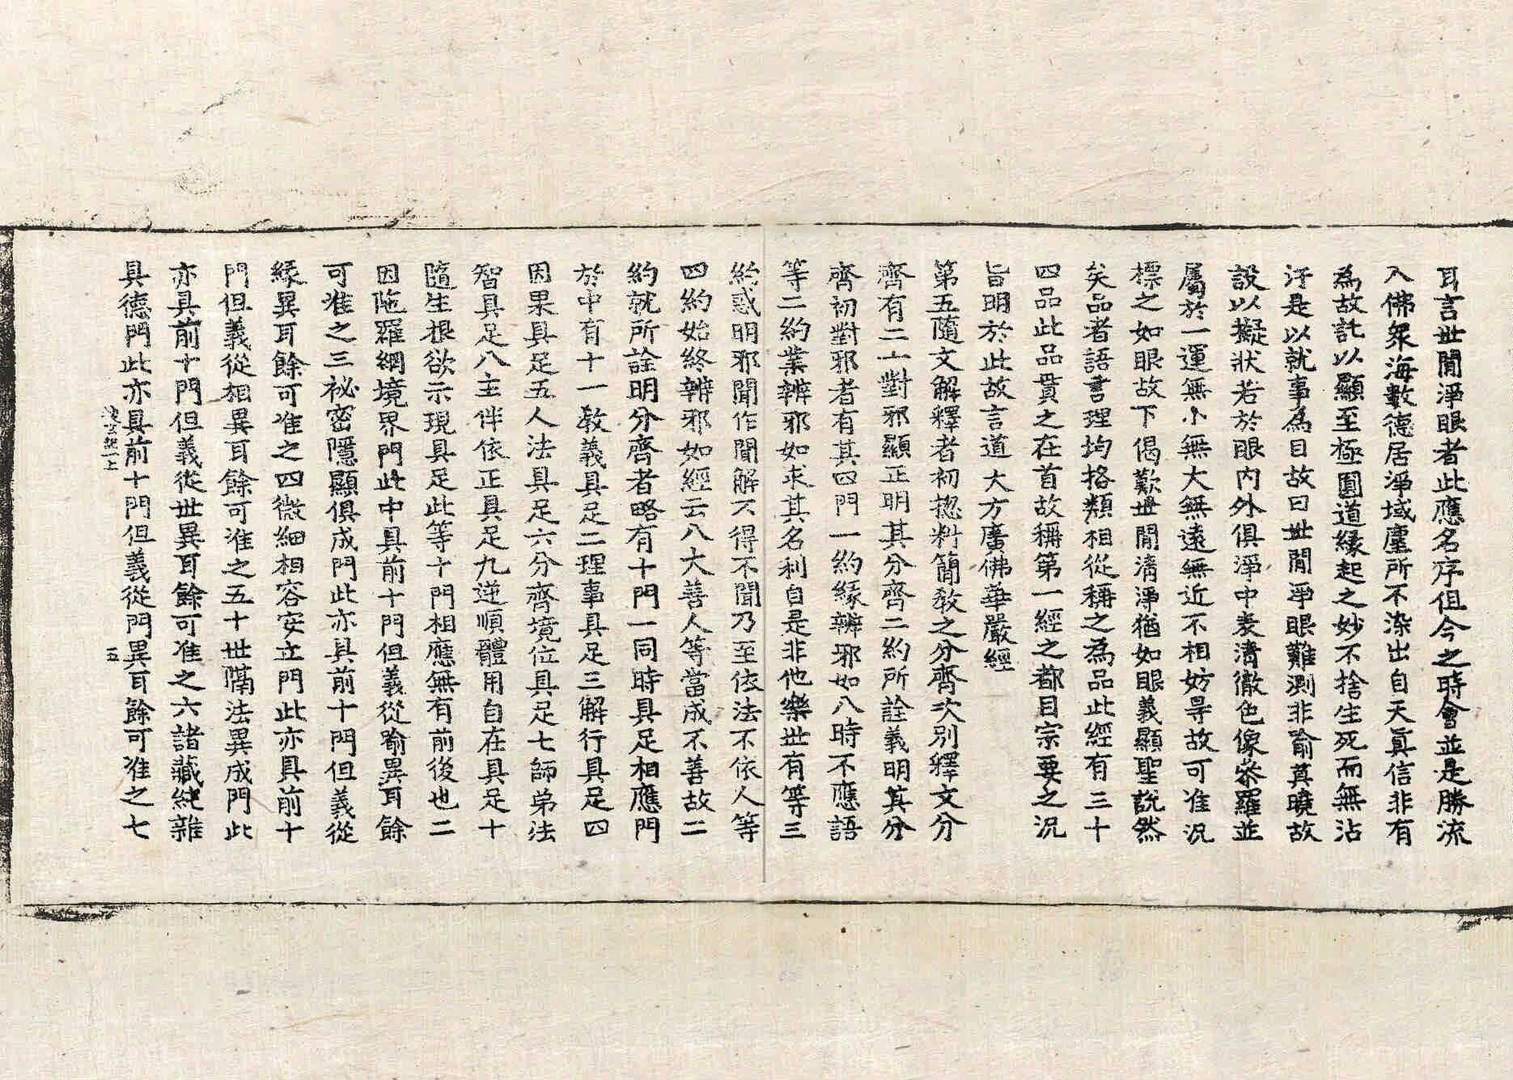 耳言世間淨眼者此應名序但今之時會並是勝流
入佛衆海數德居淨域塵所不染出自天真信非有
為故託以顯至極圓道緣起之妙不捨生死而無沾
汙是以就事為目故曰世間淨眼難測非喻莫曉故
設以擬狀若於眼內外俱淨中表清徹色像叅羅並
屬於一運無小無大無遠無近不相妨㝵故可准況
標之如眼故下偈歎世間清淨猶如眼義顯聖說然
矣品者語言理均格類相從稱之為品此經有三十
四品此品貫之在首故稱第一經之都目宗要之況
旨明於此故言道大方廣佛華嚴經
第五隨文解釋者初揔料簡教之分齊次別釋文分
齊有二一對邪顯正明其分齊二約所詮義明其分
齊初對邪者有其四門一約緣辨邪如八時不應語
等二約業辨邪如求其名利自是非他樂世有等三
約惑明邪聞作聞解不得不聞乃至依法不依人等
四約始終辨邪如經云八大善人等當成不善故二
約就所詮明分齊者略有十門一同時具足相應門
於中有十一教義具足二理事具足三解行具足四
因果具足五人法具足六分齊境位具足七師弟法
智具足八主伴依正具足九逆順體用自在具足十
隨生根欲示現具足此等十門相應無有前後也二
因陁羅網境界門此中具前十門但義從喻異耳餘
可准之三祕密隱顯俱成門此亦具前十門但義從
緣異耳餘可准之四微細相容安立門此亦具前十
門但義從相異耳餘可准之五十世隔法異成門此
亦具前十門但義從世異耳餘可准之六諸藏純雜
具德門此亦具前十門但義從門異耳餘可准之七
五